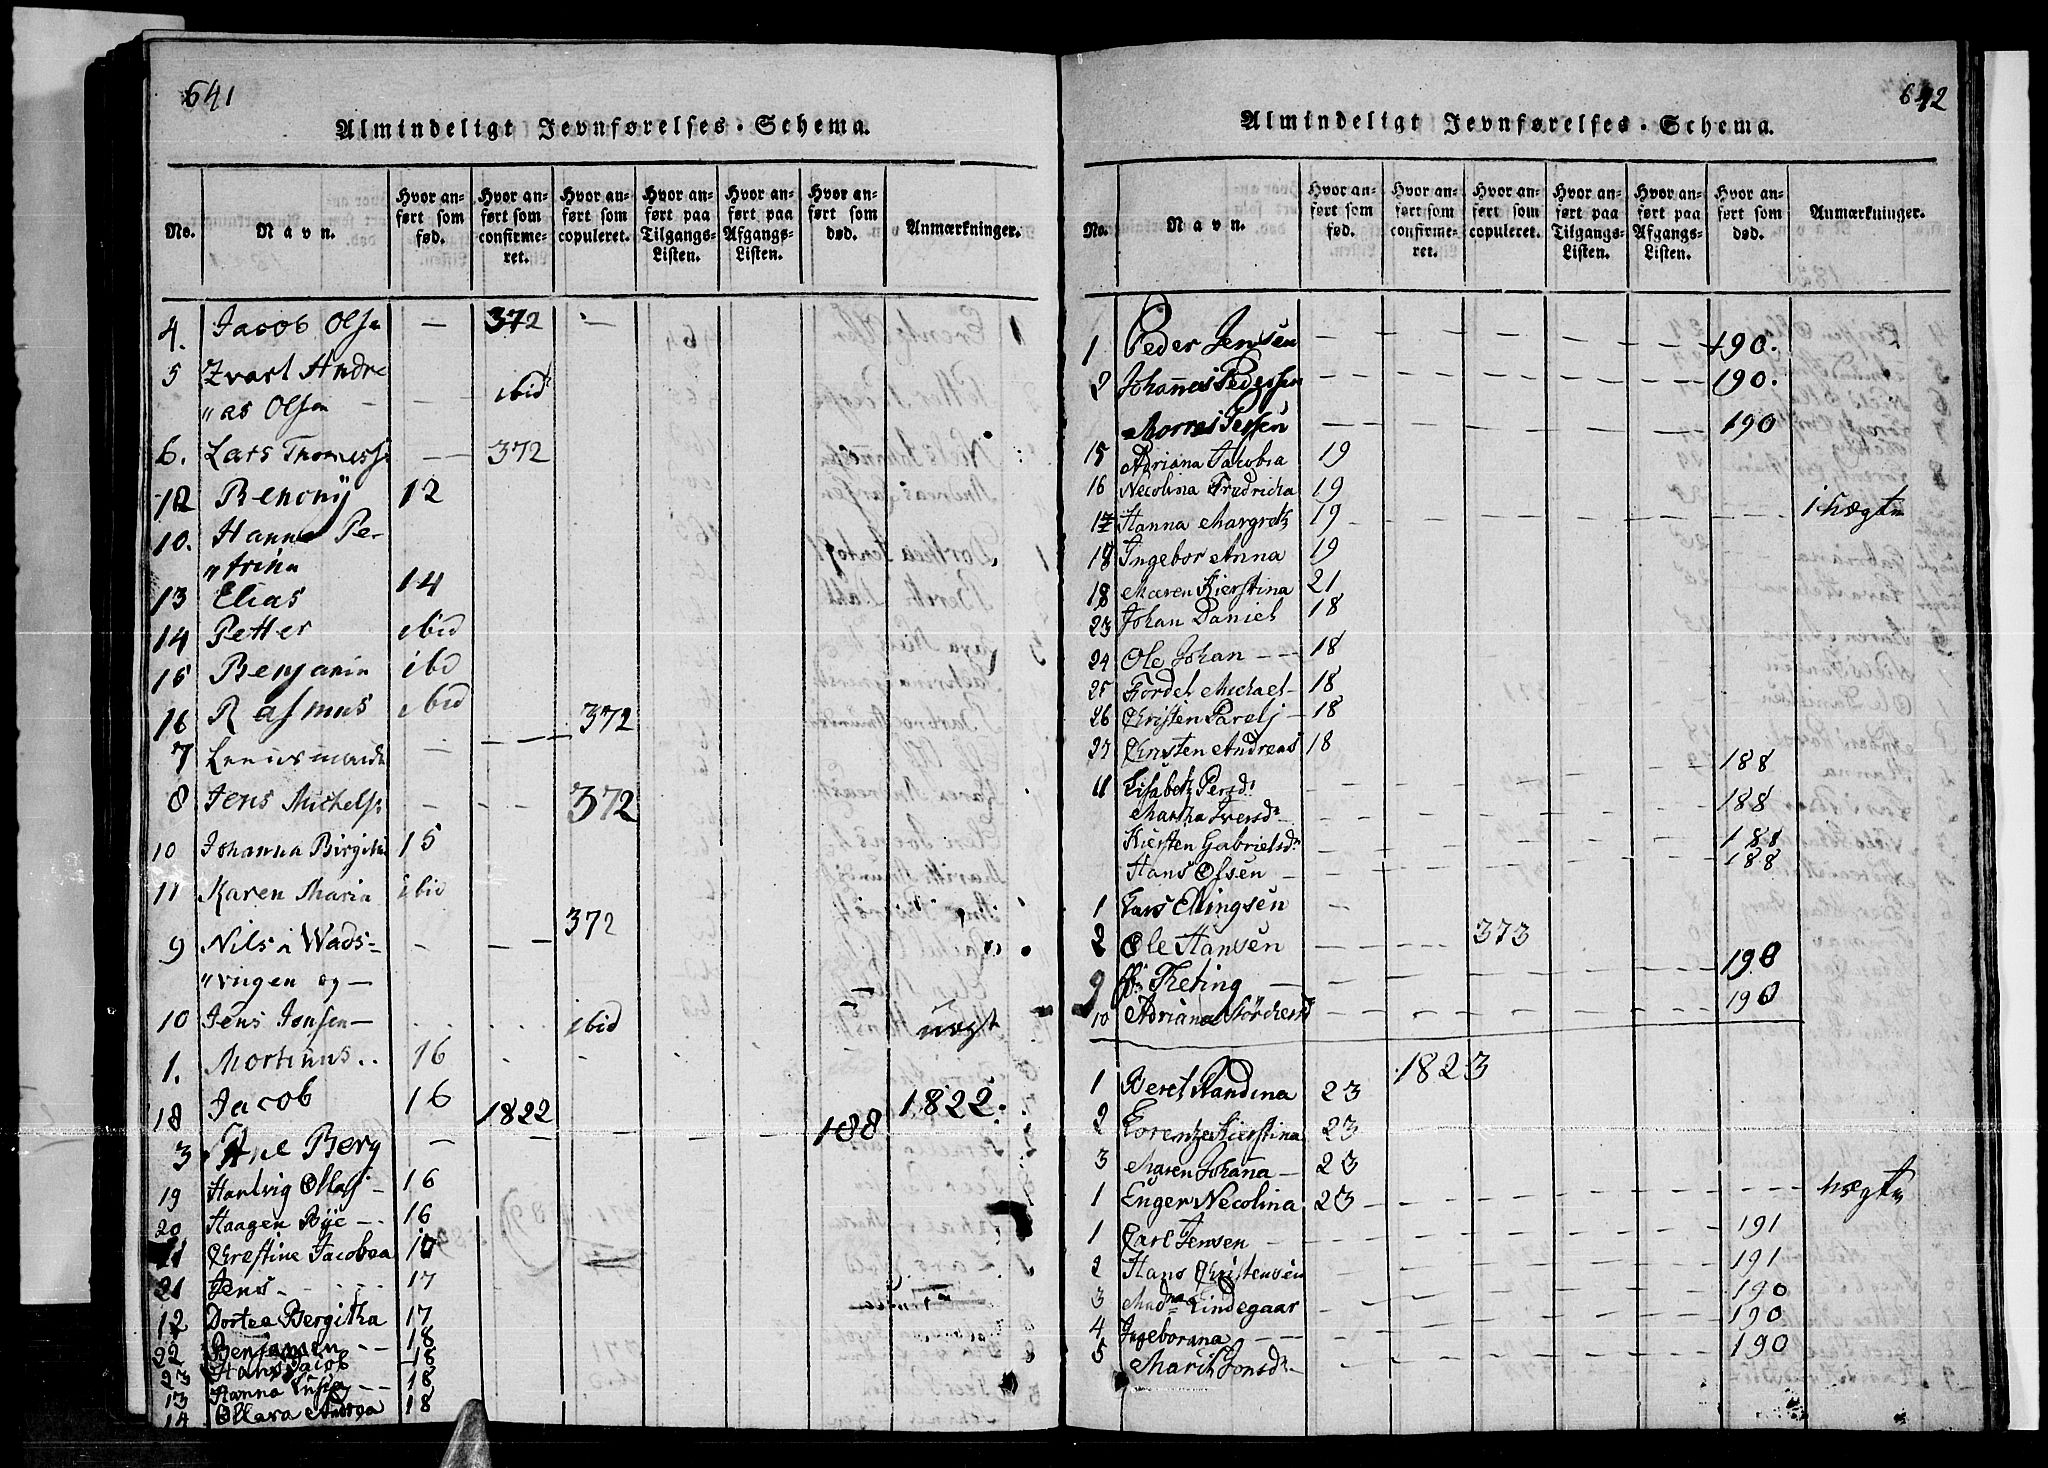 641
Almindeligt Jevnførelses-Schema.
No. Navn. Hvor anført som fød. Hvor anført som confirmeret. Hvor anført som copuleret. Hvor anført paa Tilgangs-Listen. Hvor anført paa Afgangs-Listen. Hvor anført som død. Anmærkninger.
4. Jacob Olsen — 372 —
5 Andre
„as Olsen — — ibid
6. Lars Thomess — 372
12 Benonij 12
10. Hanna Pe-
„trina
13 Elias 14
14 Petter ibid
15 Benjamin ibd
16 Rasmus ibid
7 — — — 372
8 Jens Michels — — 372
10 Johanna Birgitha 15
11 Karen Maria ibid
9 Nils i Wads- — — 372
„vigen og —
10 Jens Jonsen — ibid
1. Mortinus.. 16 - - - - — uægt
18 Jacob 16
1822 1822.
3 Ane Berg — — — — — 188
19 Hartvig Ollaj — 16
20 Haagen Bye — 16
11 Chrestine Jacobea 17
21 Jens - - - - 17
12 Dortea Bergitha 17
22 Benjamen - - 18
23 Hans Jacob 18
13 Hanna Lusia - - 18
14 Ollava Andrea 18
642
Almindeligt Jevnførelses-Schema.
No. Navn. Hvor anført som fød. Hvor anført som confirmeret. Hvor anført som copuleret. Hvor anført paa Tilgangs-Listen. Hvor anført paa Afgangs-Listen. Hvor anført som død. Anmærkninger.
1 Peder Jensen — — — — — 190.
2 Johannes Pederssen — — — — — 190.
— — — — — 190
15 Adriana Jacobea 19
16 Necolina Fredricha 19
17 Hanna Margretz 19 — — — — — — uægte
18 Ingebor Anna 19
18 Maren Kierstina 21
23 Johan Daniel 18
24 Ole Johan - - - 18
25 Tordel Michael - 18
26 Christen Parelj - 18
27 Christen Andreas 18
11 Lisabetz Persdr — — — — — 188
Martha Iversdr — — — — — 188
Kiersten Gabrielsdr — — — — — 188
Hans Olsen — — — — — 188
1 Lars Ellingsen —
2 Ole Hansen — — 373
9 Theting — — — — — 190
10 Adriana — — — — — 190
1823
1 Beret Randina 23
2 Lorentze Kierstina 23
3 Maren Johana — 23
1 Enger Necolina 23 — — — — — — uægte
1 Carl Jensen — — — — — 191
2 Hans Christensen — — — — — 191
3 Madme Lindegaar — — — — — 190
4 Ingeborana — — — — — 190
5 Marit Jonsdr — — — — — 190